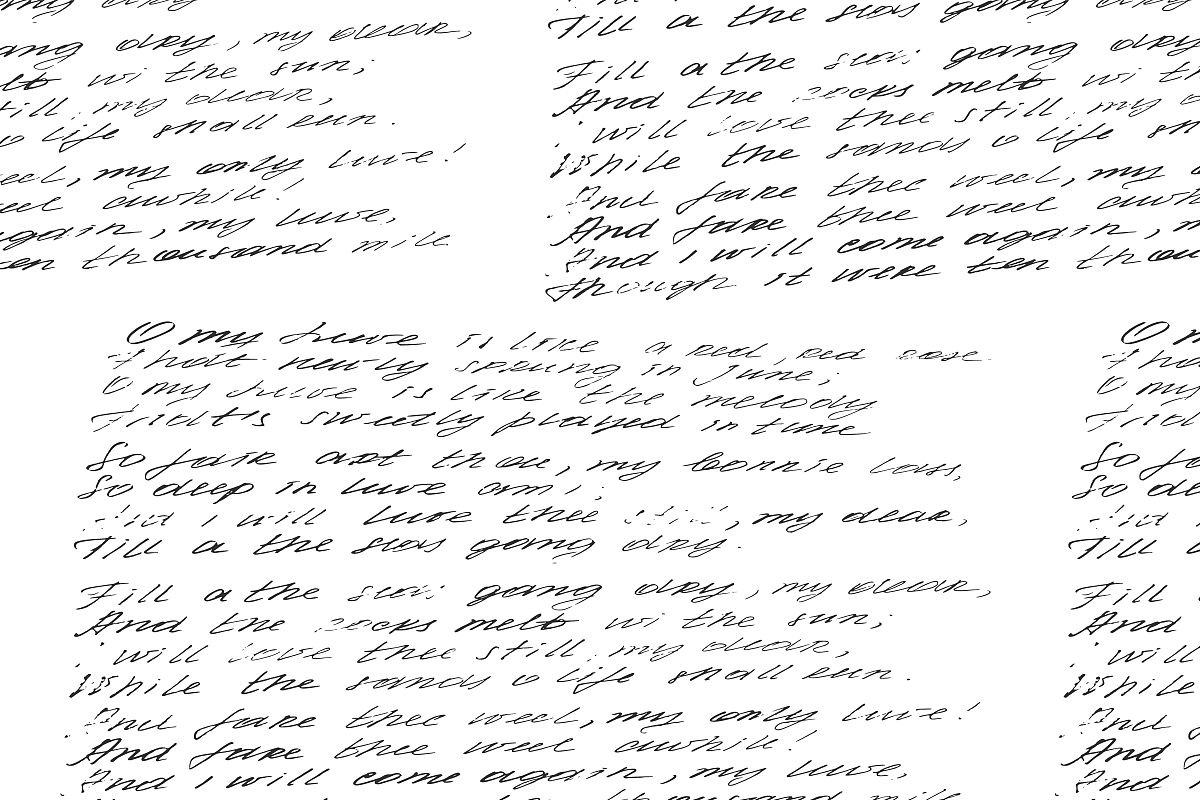 ang dry, my dear,
wi the sun;
till, my dear,
o life shall run.
weel, my only luve!
weel awhile!
again, my luve,
ten thousand mile
Till a the seas gang dry
Fill a the seas gang dry
And the rocks melt wi th
will love thee still, my d
While the sands o life sh
And fare thee weel, my o
And fare thee weel awh
And I will come again, m
Though it were ten thou
O my luve is like a red, red rose
That newly sprung in June;
O my luve is like the melody
That's sweetly played in tune
So fair art thou, my bonnie lass,
So deep in luve am I;
And I will luve thee still, my dear,
Till a the seas gang dry.
Fill a the seas gang dry, my dear,
And the rocks melt wi the sun;
will love thee still, my dear,
While the sands o life shall run.
And fare thee weel, my only luve!
And fare thee weel awhile!
And I will come again, my luve,
O m
O my
So fa
So de
Till a
Fill a
And
will
While
And f
And f
And